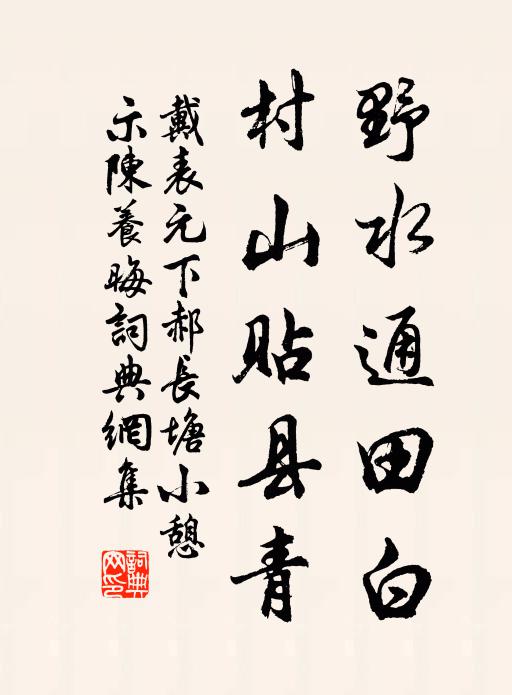 野水通田白
村山貼县青
戴表元下郝長塘小憩
示陳養晦詞典網集
詞典网印